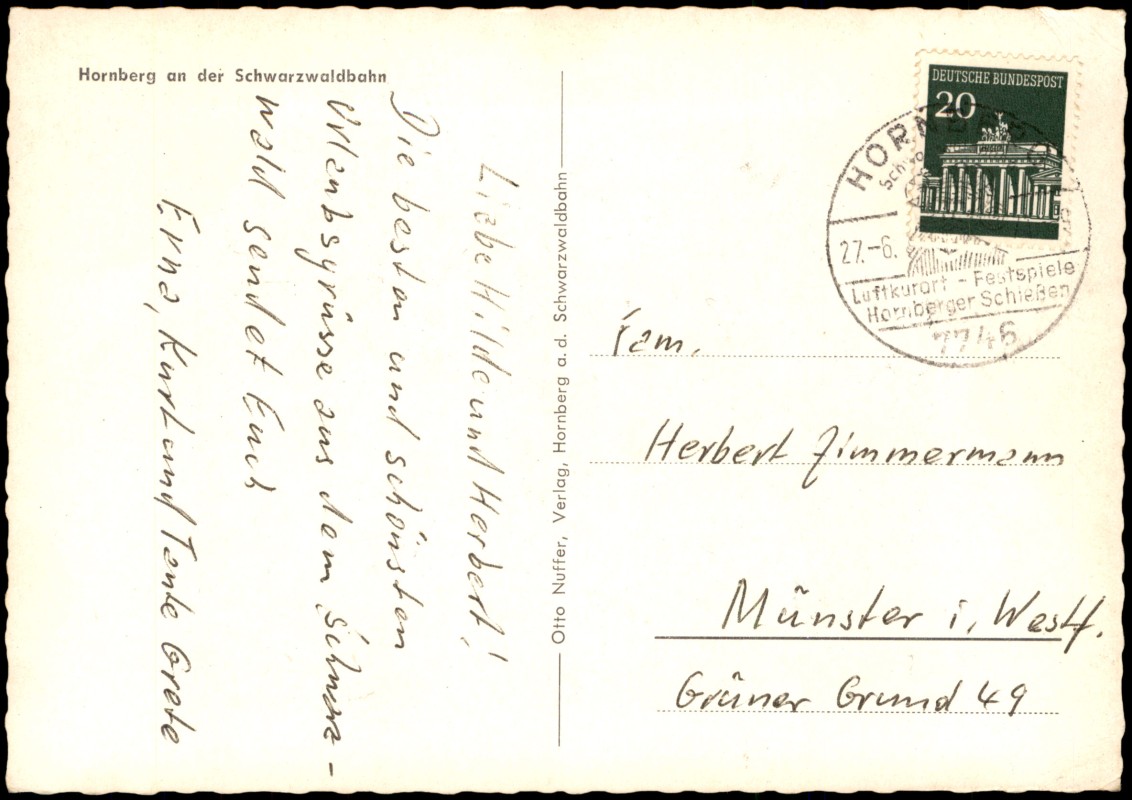 Hornberg an der Schwarzwaldbahn
Liebe Hilde und Herbert!
Die besten und schönsten
Urlaubsgrüsse aus dem Schwarz-
wald sendet Euch
Erna, Kurt und Tante Grete
Otto Nuffer, Verlag, Hornberg a. d. Schwarzwaldbahn
DEUTSCHE BUNDESPOST
20
HORNBERG
27.-6.
Luftkurort - Festspiele
Hornberger Schießen
7746
Fam.
Herbert Zimmermann
Münster i. Westf.
Grüner Grund 49